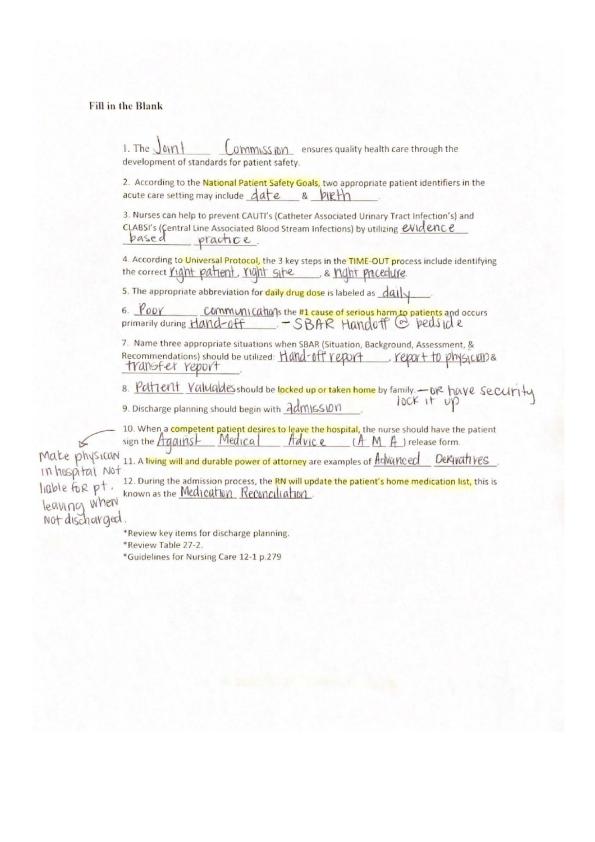 Fill in the Blank
1. The Joint Commission ensures quality health care through the
development of standards for patient safety.
2. According to the National Patient Safety Goals, two appropriate patient identifiers in the
acute care setting may include date & birth.
3. Nurses can help to prevent CAUTI's (Catheter Associated Urinary Tract Infection's) and
CLABSI's (Central Line Associated Blood Stream Infections) by utilizing evidence
based practice.
4. According to Universal Protocol, the 3 key steps in the TIME-OUT process include identifying
the correct right patient, right site, & right procedure.
5. The appropriate abbreviation for daily drug dose is labeled as daily.
6. Poor communication is the #1 cause of serious harm to patients and occurs
primarily during Hand-off. - SBAR Handoff @ bedside
7. Name three appropriate situations when SBAR (Situation, Background, Assessment, &
Recommendations) should be utilized: Hand-off report, report to physician &
transfer report.
8. Patient valuables should be locked up or taken home by family. - OR have security
lock it up
9. Discharge planning should begin with admission.
10. When a competent patient desires to leave the hospital, the nurse should have the patient
sign the Against Medical Advice (A M A) release form.
Make physician
in hospital Not
liable for pt.
leaving when
Not discharged.
11. A living will and durable power of attorney are examples of Advanced Derivatives.
12. During the admission process, the RN will update the patient's home medication list, this is
known as the Medication Reconciliation.
*Review key items for discharge planning.
*Review Table 27-2.
*Guidelines for Nursing Care 12-1 p.279